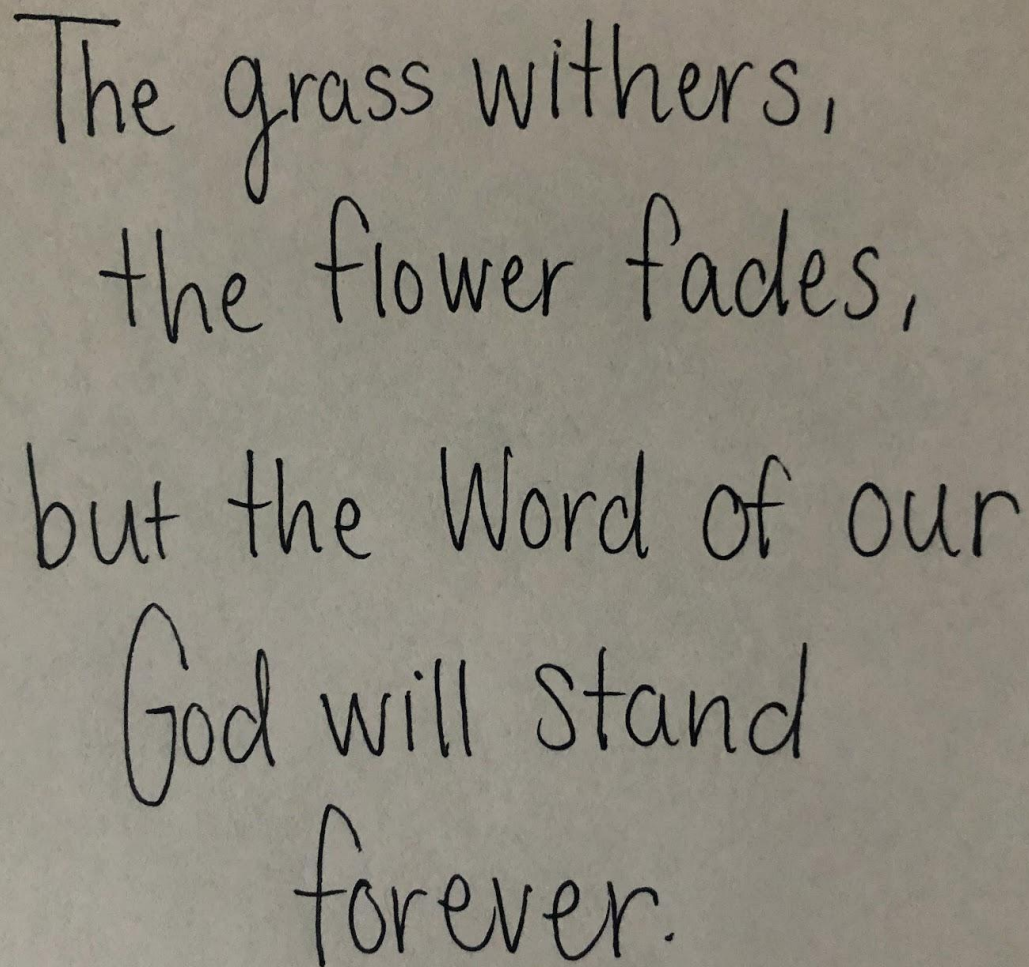 The grass withers,
the flower fades,
but the Word of our
God will stand
forever.